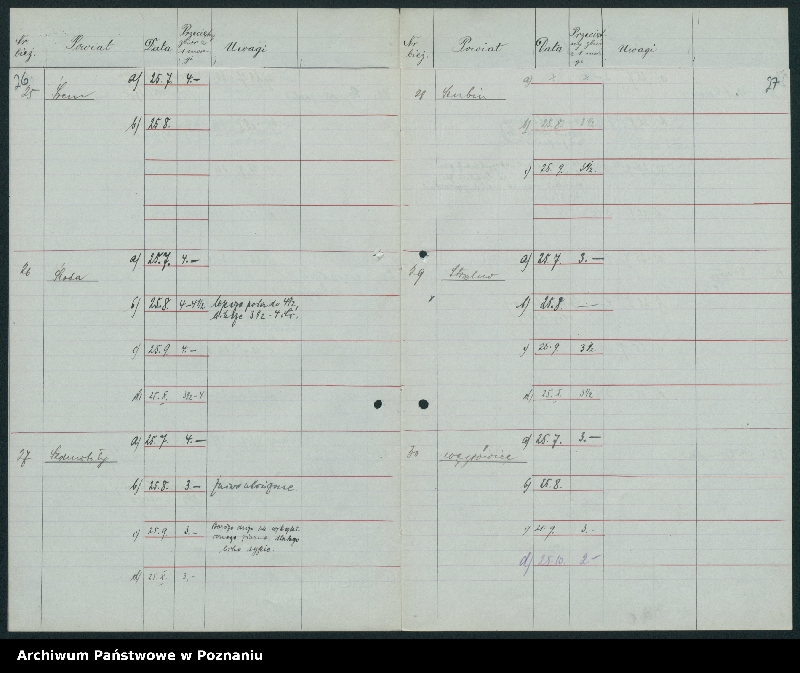 Nr bież. Powiat Data Przeciętny zbiór z 1 morgi Uwagi
26
25 Śrem a) 25.7. 4.—
b) 25 8.
26 Środa a) 25.7. 4.—
b) 25.8. 4-4½ lepsze pola do 4½,
słabsze 3½ - 4 ctr.
c) 25.9 4.—
d) 25.X. 3½-4
27 Szamotuły a) 25.7. 4.—
b) 25.8. 3.—
c) 25.9. 3.—
d) 25.X. 3.-
Nr bież. Powiat Data Przeciętny zbiór z 1 morgi Uwagi
27
28 Szubin a)
b) 25.8. 3½
c) 25.9. 3½.
29 Strzelno a) 25.7. 3.—
b) 25.8. —
c) 25.9. 3½
d) 25.X. 3½
30 Wągrowiec a) 25.7. 3.—
b) 25.8.
c) 25.9. 3.-
d) 25.10. 2-
Archiwum Państwowe w Poznaniu